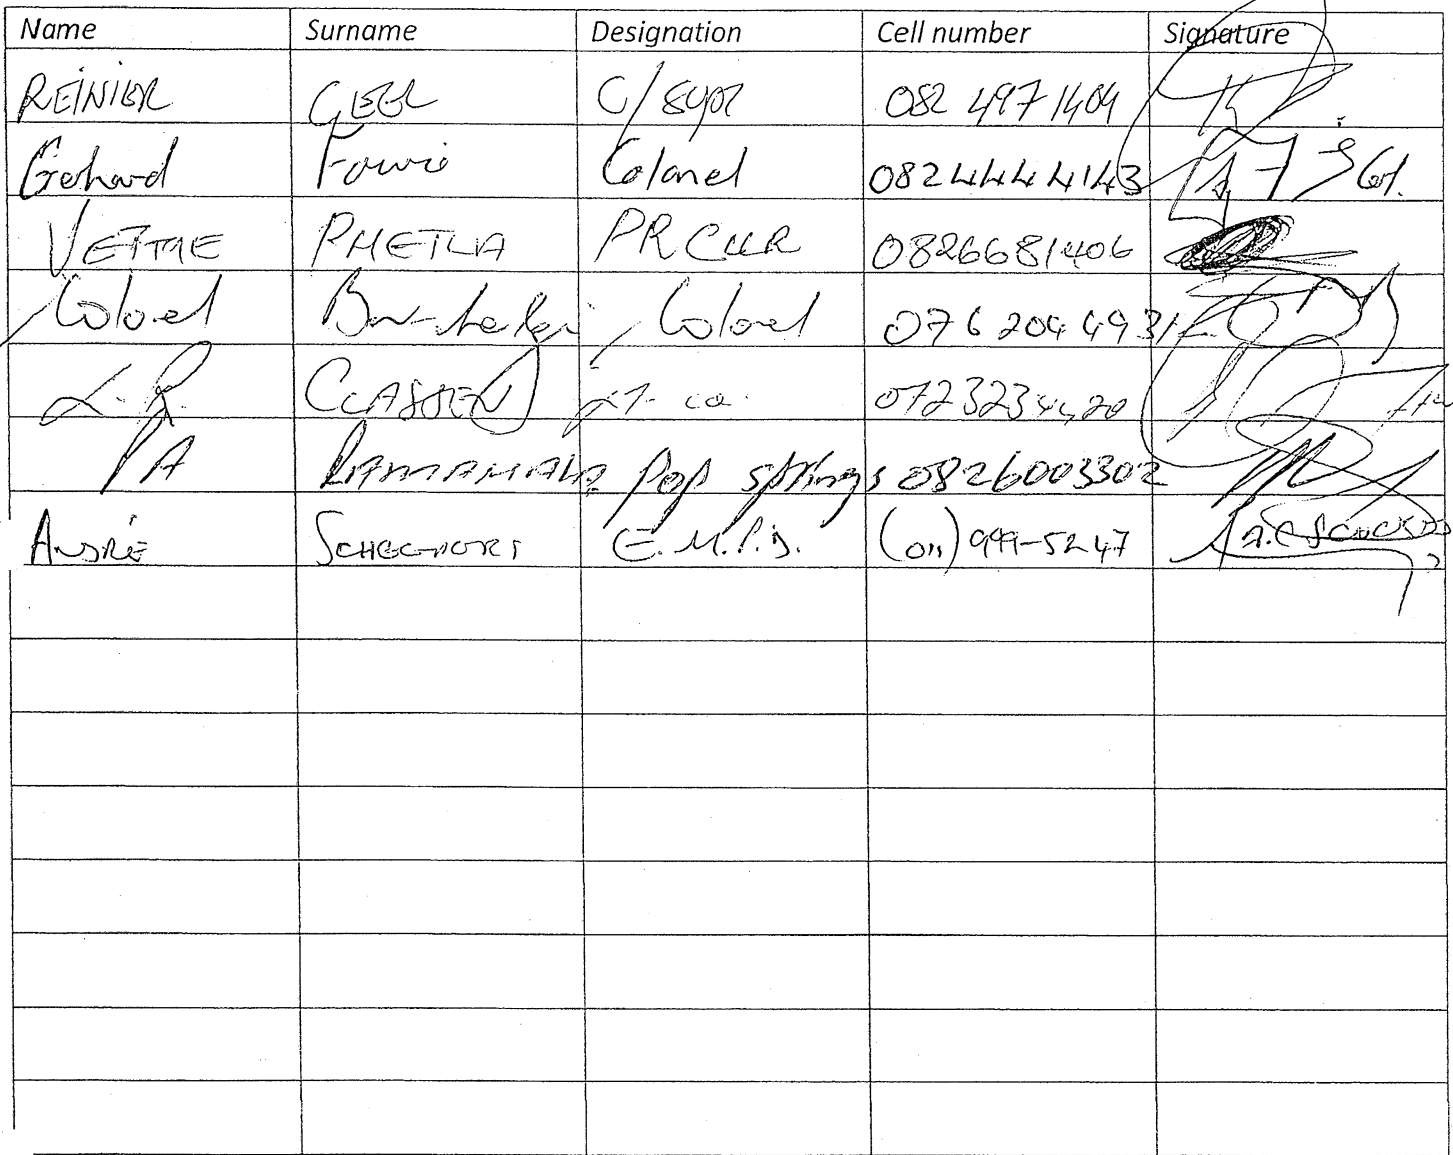 Name Surname Designation Cell number Signature
REINIER GEEL C/Supt 082 4971404
Gerhard Fourie Colonel 0824444143 Col.
PHETLA 0826681406
Colonel Colonel 076 204 4931
L.R. CLASSEN Lt. Col. 0723234420
PA RAMAHALA Pop springs 0826003302
ANDRÉ E.M.P.D. (011) 999-5247